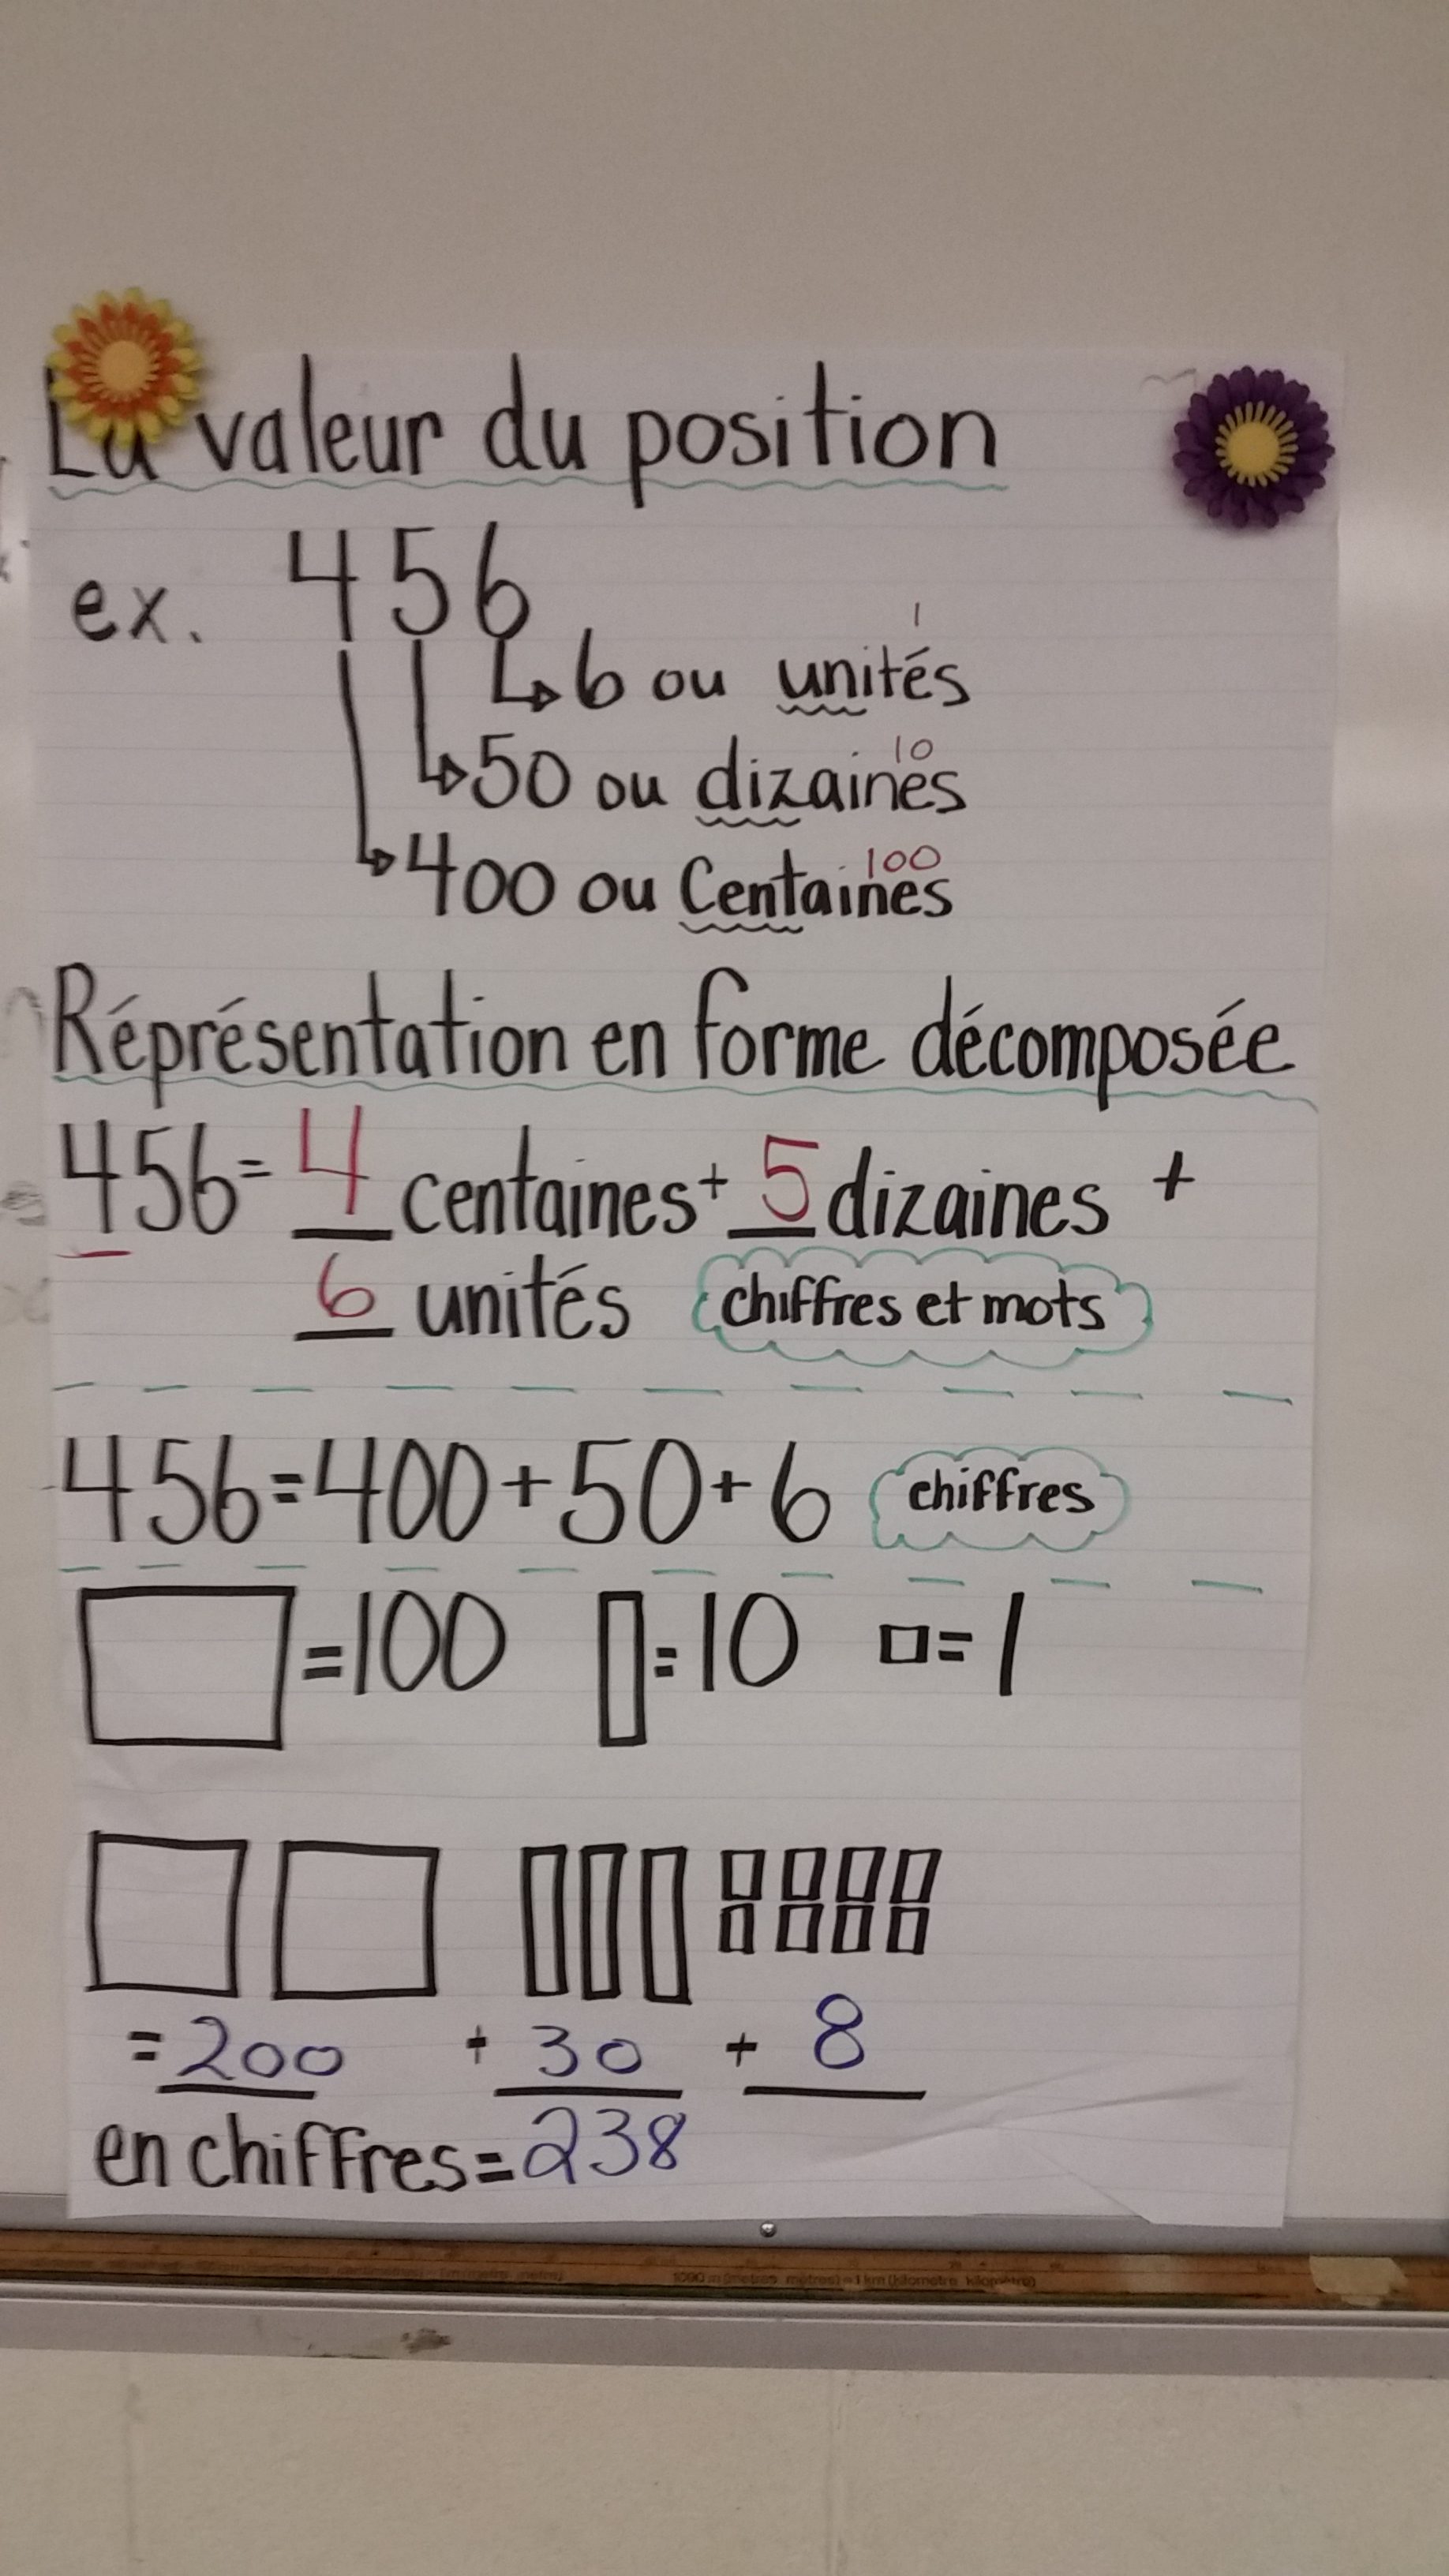 La valeur du position
ex. 456
1
6 ou unités
10
50 ou dizaines
100
400 ou Centaines
Réprésentation en forme décomposée
456= 4 centaines + 5 dizaines +
6 unités chiffres et mots
456=400+50+6 chiffres
=100 =10 =1
= 200 + 30 + 8
en chiffres = 238
1000 m (metres, mètres) = 1 km (kilometre, kilomètre)